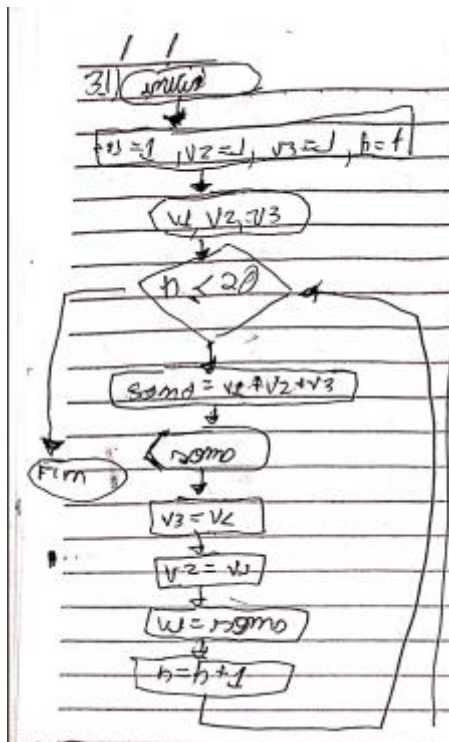 31) início
v1=1, v2=1, v3=1, h=4
v1, v2, v3
h < 20
soma = v1+v2+v3
soma
Fim
v3=v2
v2=v1
v1=soma
h=h+1